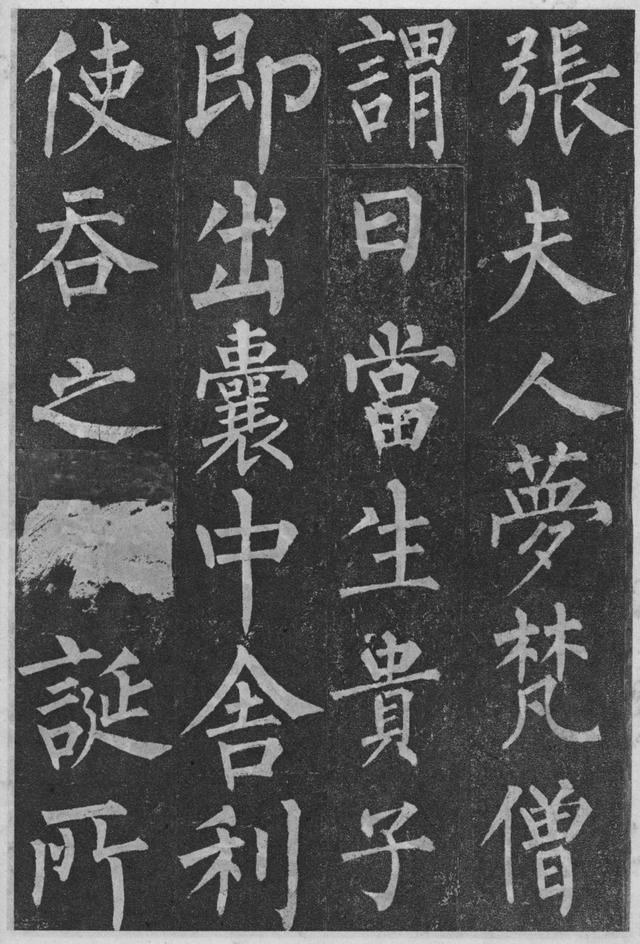 張夫人夢梵僧
謂曰當生貴子
即出囊中舍利
使吞之誕所